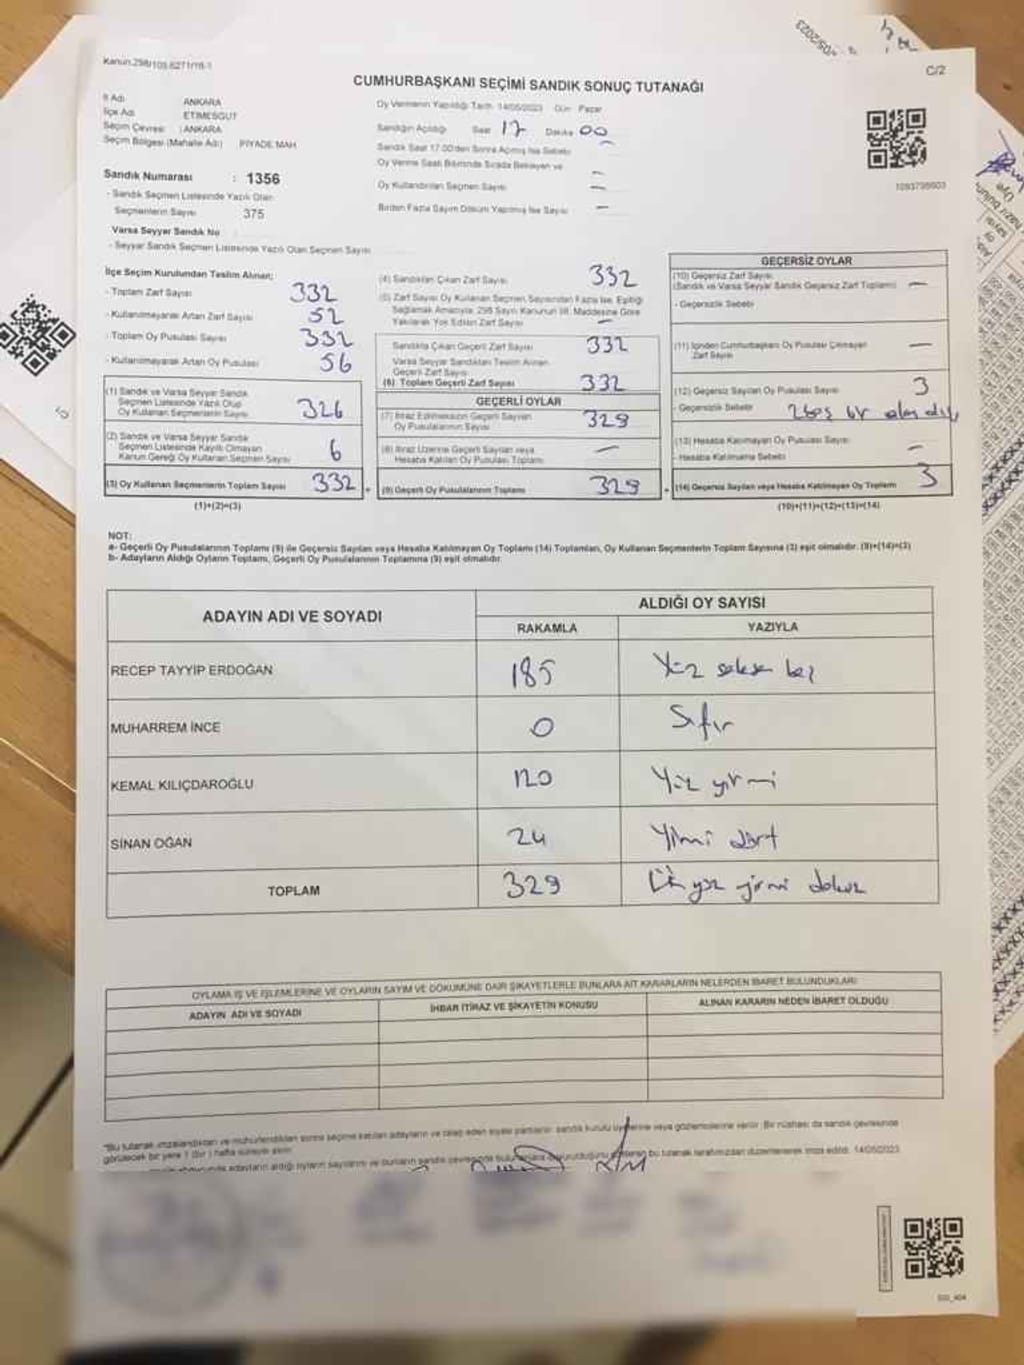 Kanun.298/105-6271/18-1
C/2
CUMHURBAŞKANI SEÇİMİ SANDIK SONUÇ TUTANAĞI
İl Adı ANKARA
İlçe Adı ETİMESGUT
Seçim Çevresi : ANKARA
Seçim Bölgesi (Mahalle Adı) PİYADE MAH
Sandık Numarası : 1356
- Sandık Seçmen Listesinde Yazılı Olan
Seçmenlerin Sayısı 375
Varsa Seyyar Sandık No
- Seyyar Sandık Seçmen Listesinde Yazılı Olan Seçmen Sayısı
Oy Vermenin Yapıldığı Tarih 14/05/2023 Gün Pazar
Sandığın Açıldığı Saat 17 Dakika 00
Sandık Saat 17.00'den Sonra Açılmış İse Sebebi
Oy Verme Saati Bitiminde Sırada Bekleyen ve
Oy Kullandırılan Seçmen Sayısı —
Birden Fazla Sayım Döküm Yapılmış İse Sayısı —
1093798603
İlçe Seçim Kurulundan Teslim Alınan;
- Toplam Zarf Sayısı 332
- Kullanılmayarak Artan Zarf Sayısı 52
- Toplam Oy Pusulası Sayısı 332
- Kullanılmayarak Artan Oy Pusulası 56
(1) Sandık ve Varsa Seyyar Sandık
Seçmen Listesinde Yazılı Olup
Oy Kullanan Seçmenlerin Sayısı 326
(2) Sandık ve Varsa Seyyar Sandık
Seçmen Listesinde Kayıtlı Olmayan
Kanun Gereği Oy Kullanan Seçmen Sayısı 6
(3) Oy Kullanan Seçmenlerin Toplam Sayısı 332
(1)+(2)=(3)
(4) Sandıktan Çıkan Zarf Sayısı 332
(5) Zarf Sayısı Oy Kullanan Seçmen Sayısından Fazla İse, Eşitliği
Sağlamak Amacıyla, 298 Sayılı Kanunun 98. Maddesine Göre
Yakılarak Yok Edilen Zarf Sayısı —
Sandıkta Çıkan Geçerli Zarf Sayısı 332
Varsa Seyyar Sandıktan Teslim Alınan
Geçerli Zarf Sayısı
(6) Toplam Geçerli Zarf Sayısı 332
GEÇERLİ OYLAR
(7) İtiraz Edilmeksizin Geçerli Sayılan
Oy Pusulalarının Sayısı 329
(8) İtiraz Üzerine Geçerli Sayılan veya
Hesaba Katılan Oy Pusulası Toplamı —
(9) Geçerli Oy Pusulalarının Toplamı 329
GEÇERSİZ OYLAR
(10) Geçersiz Zarf Sayısı
(Sandık ve Varsa Seyyar Sandık Geçersiz Zarf Toplamı) —
- Geçersizlik Sebebi
(11) İçinden Cumhurbaşkanı Oy Pusulası Çıkmayan
Zarf Sayısı —
(12) Geçersiz Sayılan Oy Pusulası Sayısı 3
- Geçersizlik Sebebi
(13) Hesaba Katılmayan Oy Pusulası Sayısı —
- Hesaba Katılmama Sebebi
(14) Geçersiz Sayılan veya Hesaba Katılmayan Oy Toplamı 3
(10)+(11)+(12)+(13)=(14)
NOT:
a- Geçerli Oy Pusulalarının Toplamı (9) ile Geçersiz Sayılan veya Hesaba Katılmayan Oy Toplamı (14) Toplamları, Oy Kullanan Seçmenlerin Toplam Sayısına (3) eşit olmalıdır. (9)+(14)=(3)
b- Adayların Aldığı Oyların Toplamı, Geçerli Oy Pusulalarının Toplamına (9) eşit olmalıdır.
ADAYIN ADI VE SOYADI ALDIĞI OY SAYISI
RAKAMLA YAZIYLA
RECEP TAYYİP ERDOĞAN 185 Yüz seksen beş
MUHARREM İNCE 0 Sıfır
KEMAL KILIÇDAROĞLU 120 Yüz yirmi
SİNAN OĞAN 24 Yirmi dört
TOPLAM 329 Üç yüz yirmi dokuz
OYLAMA İŞ VE İŞLEMLERİNE VE OYLARIN SAYIM VE DÖKÜMÜNE DAİR ŞİKAYETLERLE BUNLARA AİT KARARLARIN NELERDEN İBARET BULUNDUKLARI
ADAYIN ADI VE SOYADI İHBAR İTİRAZ VE ŞİKAYETİN KONUSU ALINAN KARARIN NEDEN İBARET OLDUĞU
"Bu tutanak imzalandıktan ve mühürlendikten sonra seçime katılan adayların ve talep eden siyasi partilerin sandık kurulu üyelerine veya gözlemcilerine verilir. Bir nüshası da sandık çevresinde
görülecek bir yere 1 (bir) hafta süreyle asılır.
adayların aldığı oyların sayılarını ve bunların sandık çevresinde bu tutanak tarafımızdan düzenlenerek imza edildi. 14/05/2023